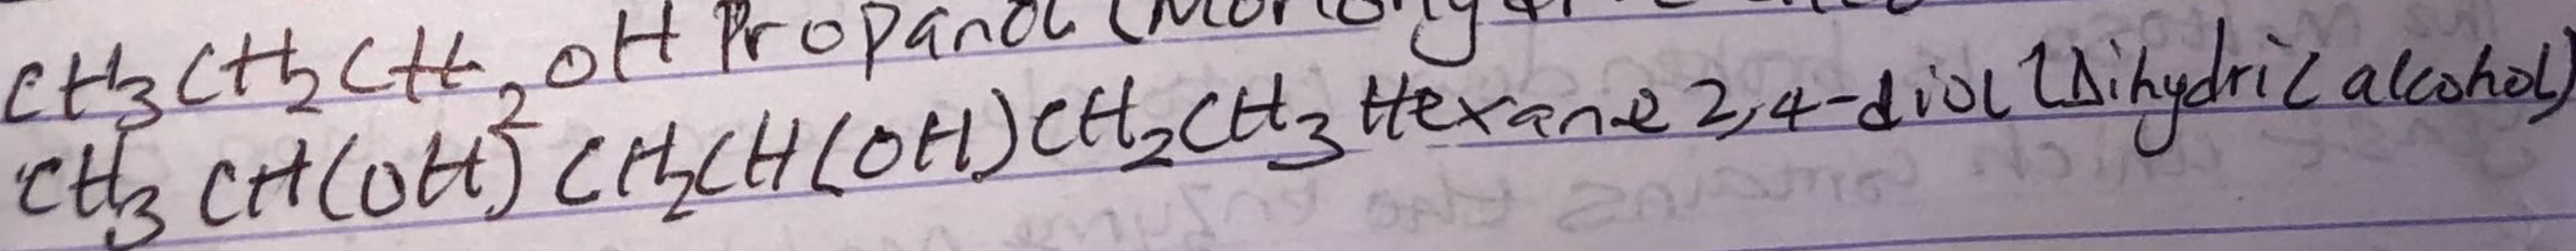 CH3CH2CH2OH Propanol
CH3CH(OH)CH2CH(OH)CH2CH3 Hexane 2,4-diol (Dihydric alcohol)